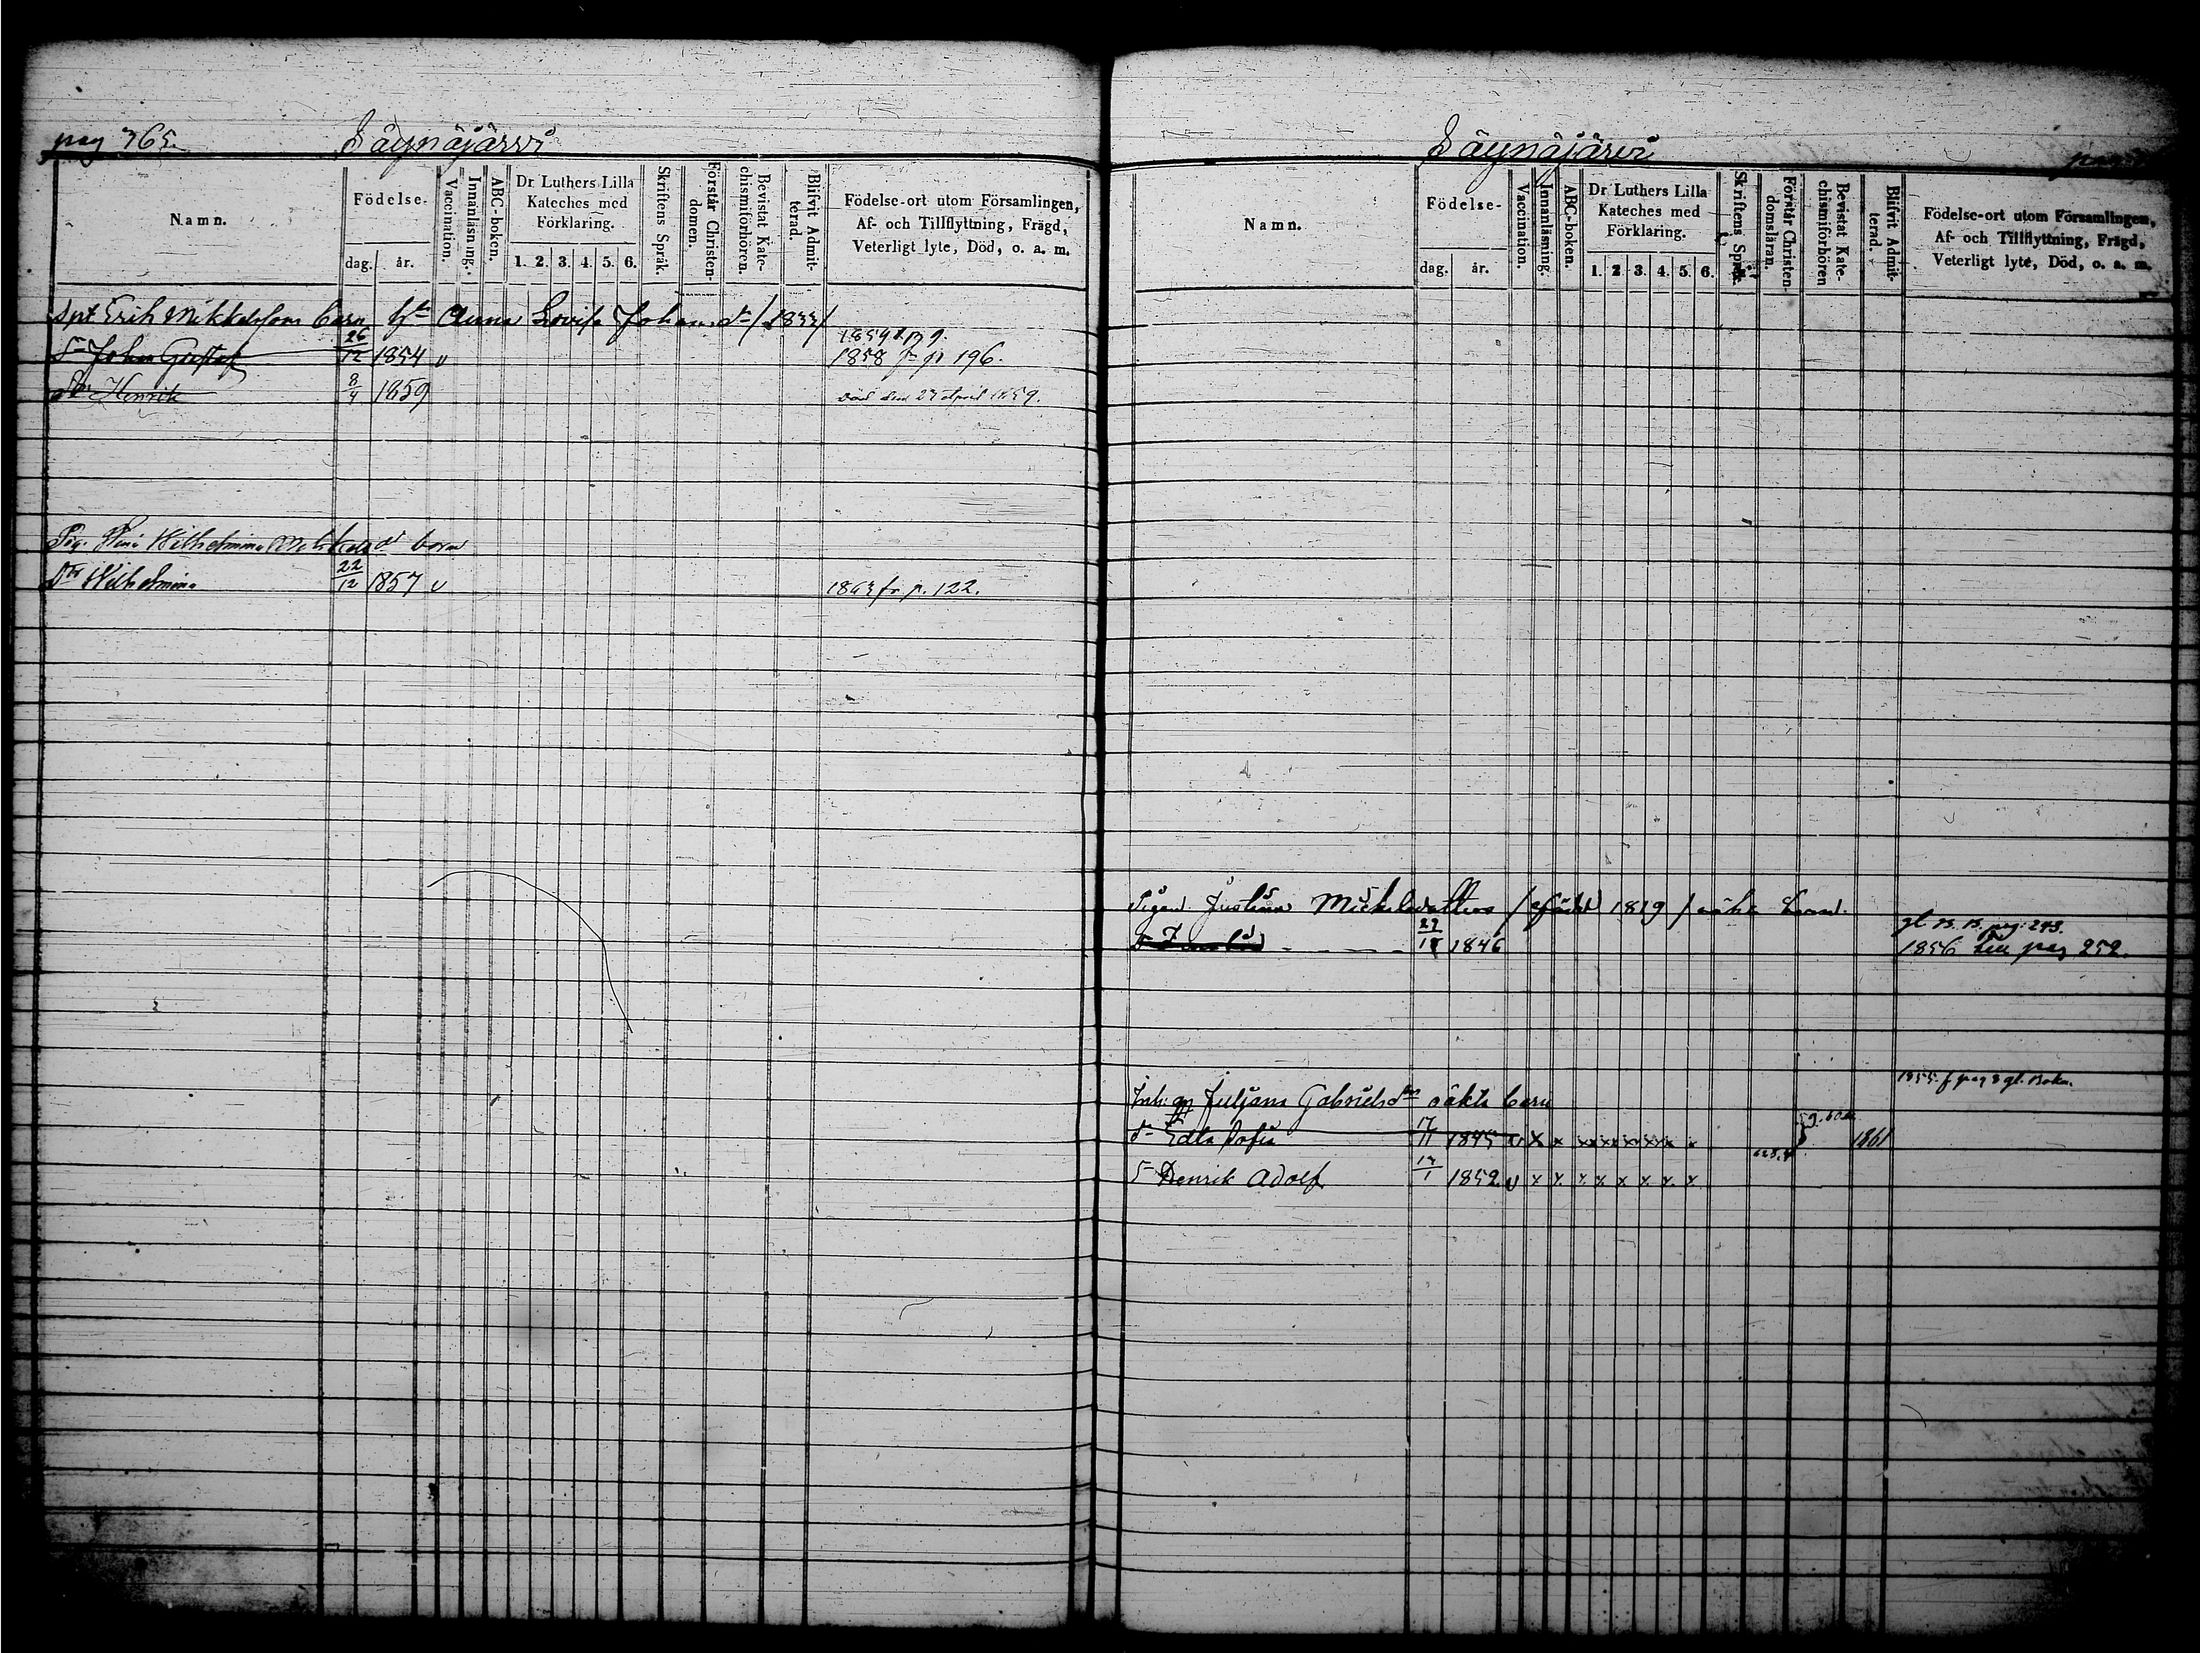 pag 365.
Säynäjärvi
Namn.
Födelse-
dag.
år.
Vaccination.
Innanläsning.
ABC-boken.
Dr Luthers Lilla
Kateches med
Förklaring.
1. 2. 3. 4. 5. 6.
Skriftens Språk.
Förstår Christen-
domen.
Bevistat Kate-
chismiförhören.
Blifvit Admit-
terad.
Födelse-ort utom Församlingen,
Af- och Tillflyttning, Frägd,
Veterligt lyte, Död, o. a. m.
Erik Mikkelsson barn Anna Lovisa Johansdr /1833/
Sn Johan Gustaf 26/12 1854 v
1858 fr p 196.
Sn Henrik 8/4 1859 död den 27 April 1859.
Pig. Wilhelmina barn
Dr Wilhelmina 22/12 1857 v 1863 fr p. 122.
Säynäjärvi
Namn.
Födelse-
dag.
år.
Vaccination.
Innanläsning.
ABC-boken.
Dr Luthers Lilla
Kateches med
Förklaring.
1. 2. 3. 4. 5. 6.
Skriftens Språk.
Förstår Christen-
domsläran.
Bevistat Kate-
chismiförhören
Blifvit Admit-
terad.
Födelse-ort utom Församlingen,
Af- och Tillflyttning, Frägd,
Veterligt lyte, Död, o. a. m.
Pigan Justina Mickelsdotters /född 1819/ oäkta barn.
gl B. B. pag 243.
1846
1856 till pag 252.
1855 f pag 3 gl. Boken.
Juljana Gabrielsdrs oäkta barn
dr Edla Sofia 17/11 1845 v x x x x x x x x x 1861
Sn Henrik Adolf 1852 v x x x x x x x x